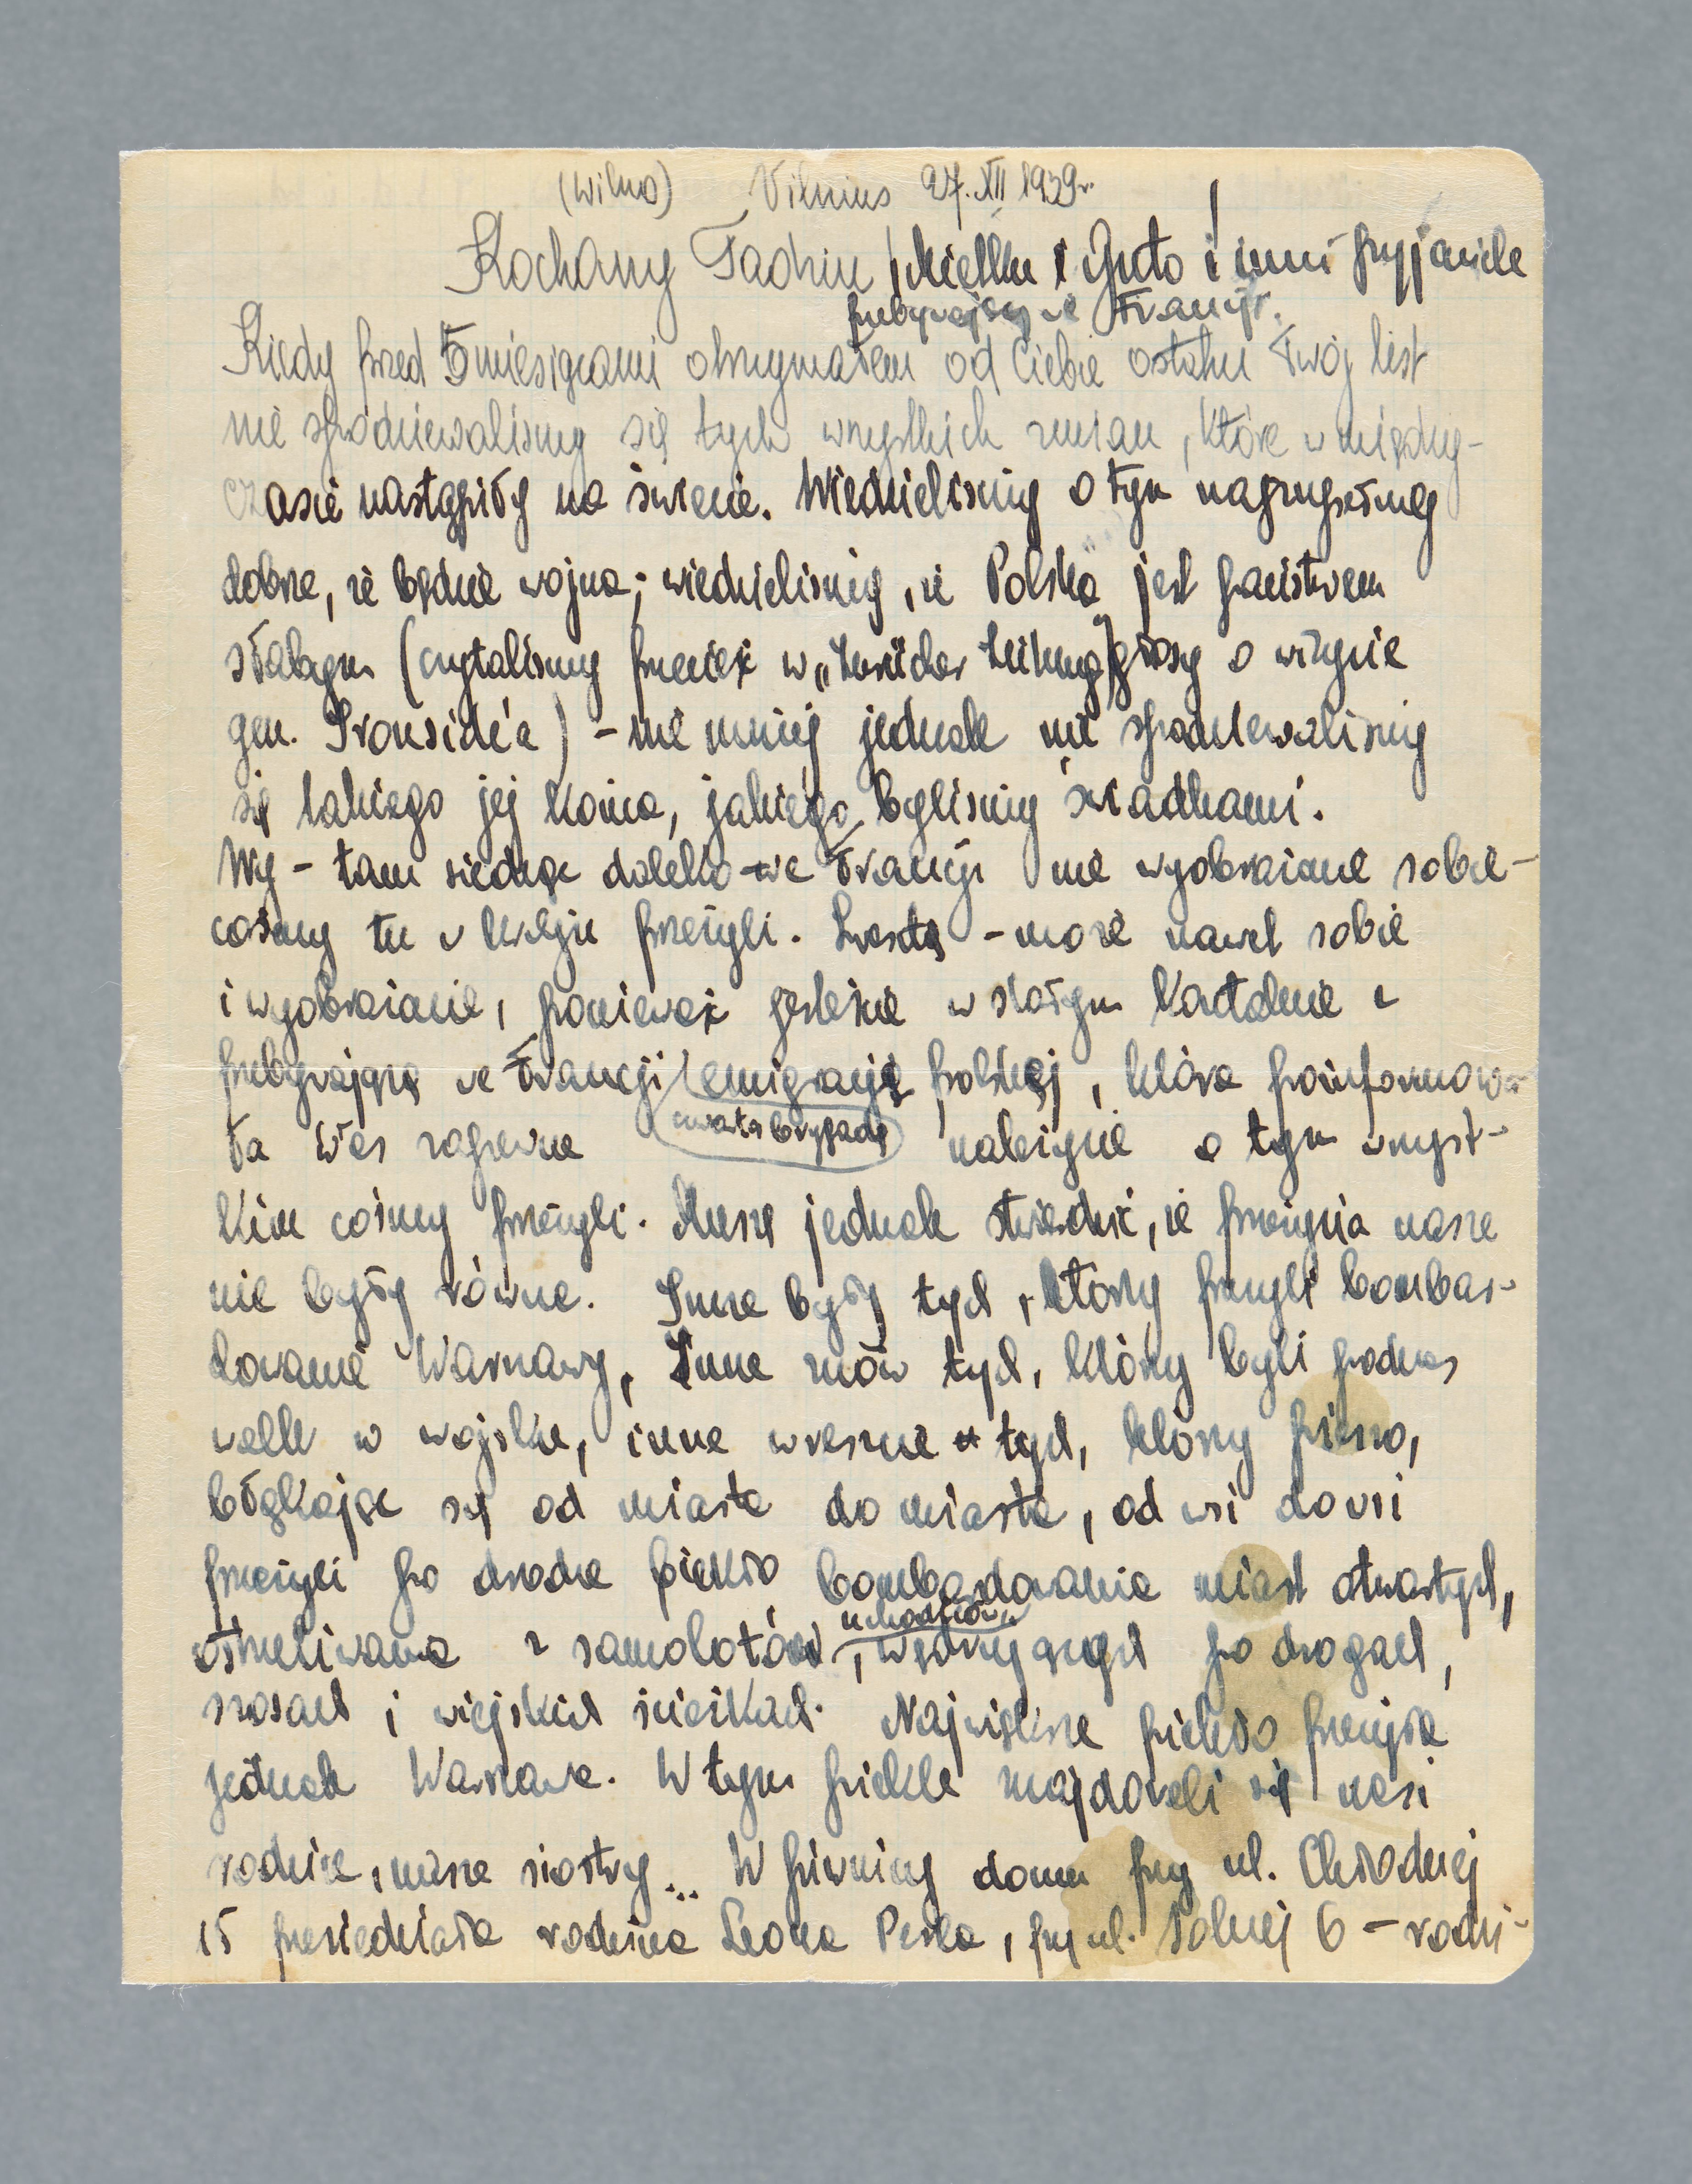 (Wilno) Vilnius 27. XII 1939r.
Kochany Tadziu, Mietku i Guto i inni przyjaciele
przebywający we Francji.
Kiedy przed 5 miesiącami otrzymałem od Ciebie ostatni Twój list
nie spodziewaliśmy się tych wszystkich zmian, które w między-
czasie nastąpiły na świecie. Wiedzieliśmy o tym
dobrze, że będzie wojna; wiedzieliśmy, że Polska jest państwem
słabym (czytaliśmy przecież w głosy o wizycie
gen. Ironside'a) - nie mniej jednak nie spodziewaliśmy
się takiego jej końca, jakiego byliśmy świadkami.
Wy - tam siedząc daleko we Francji nie wyobrażacie sobie -
cośmy tu w kraju przeżyli. Zresztą - może nawet sobie
i wyobrażacie, ponieważ jesteście w stałym kontakcie z
przebywającą we Francji emigracją polską, która poinformowa-
ła Was zapewne czwartą brygadą należycie o tym wszyst-
kim cośmy przeżyli. Muszę jednak stwierdzić, że przeżycia nasze
nie były równe. Inne były tych, którzy przeżyli bombar-
dowanie Warszawy, inne znów tych, którzy byli podczas
walk w wojsku, inne wreszcie tych, którzy pieszo,
błąkając się od miasta do miasta, od wsi do wsi
przeżyli po drodze piekło bombardowania miast otwartych,
ostrzeliwania z samolotów, uchodźców wędrujących po drogach,
szosach i wiejskich ścieżkach. Największe piekło przeżyła
jednak Warszawa. W tym piekle znajdowali się nasi
rodzice, nasze siostry... W piwnicy domu przy ul. Chłodnej
15 przesiedziała rodzina Leona Perla, przy ul. Solnej 6 - rodzi-